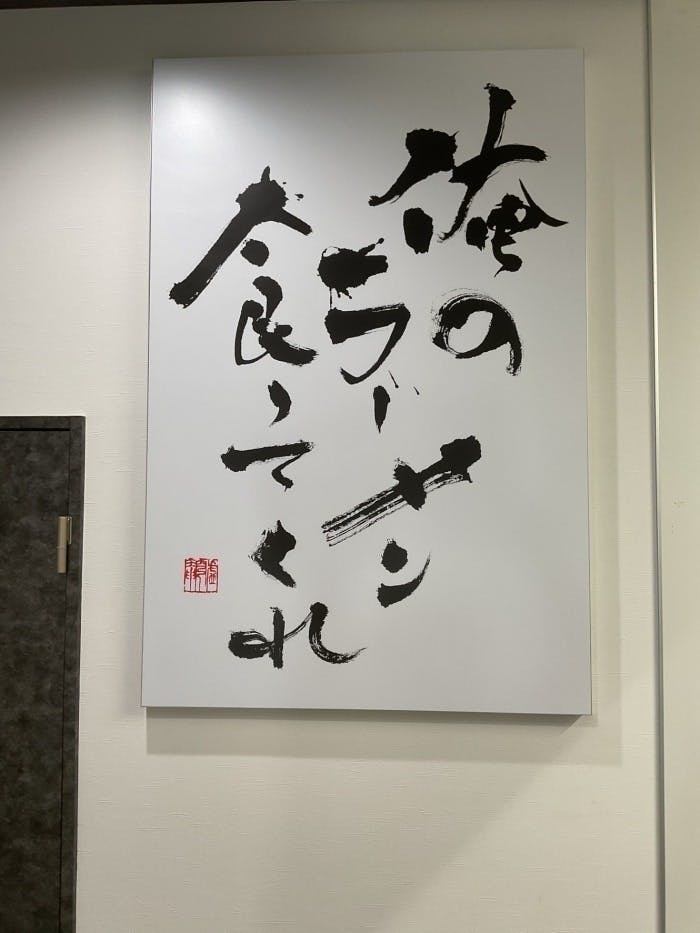 俺の
ラーメン
食ってくれ